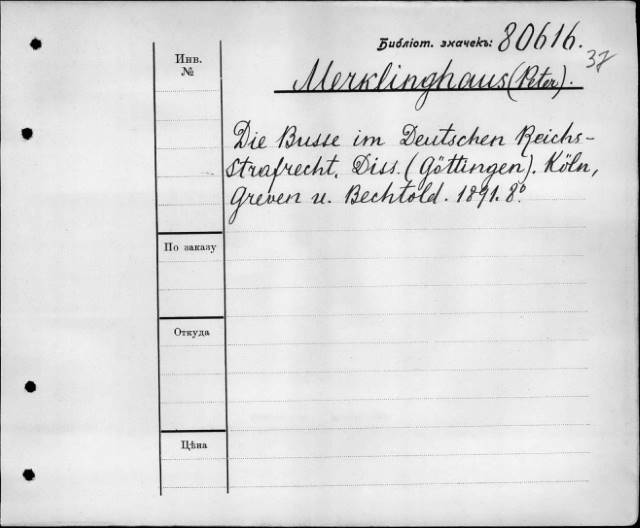 Библіот. значекъ: 80616.
37
Инв.
№
Merklinghaus (Peter).
Die Busse im Deutschen Reichs-
strafrecht. Diss. (Göttingen). Köln,
Greven u. Bechtold. 1891. 8º
По заказу
Откуда
Цѣна